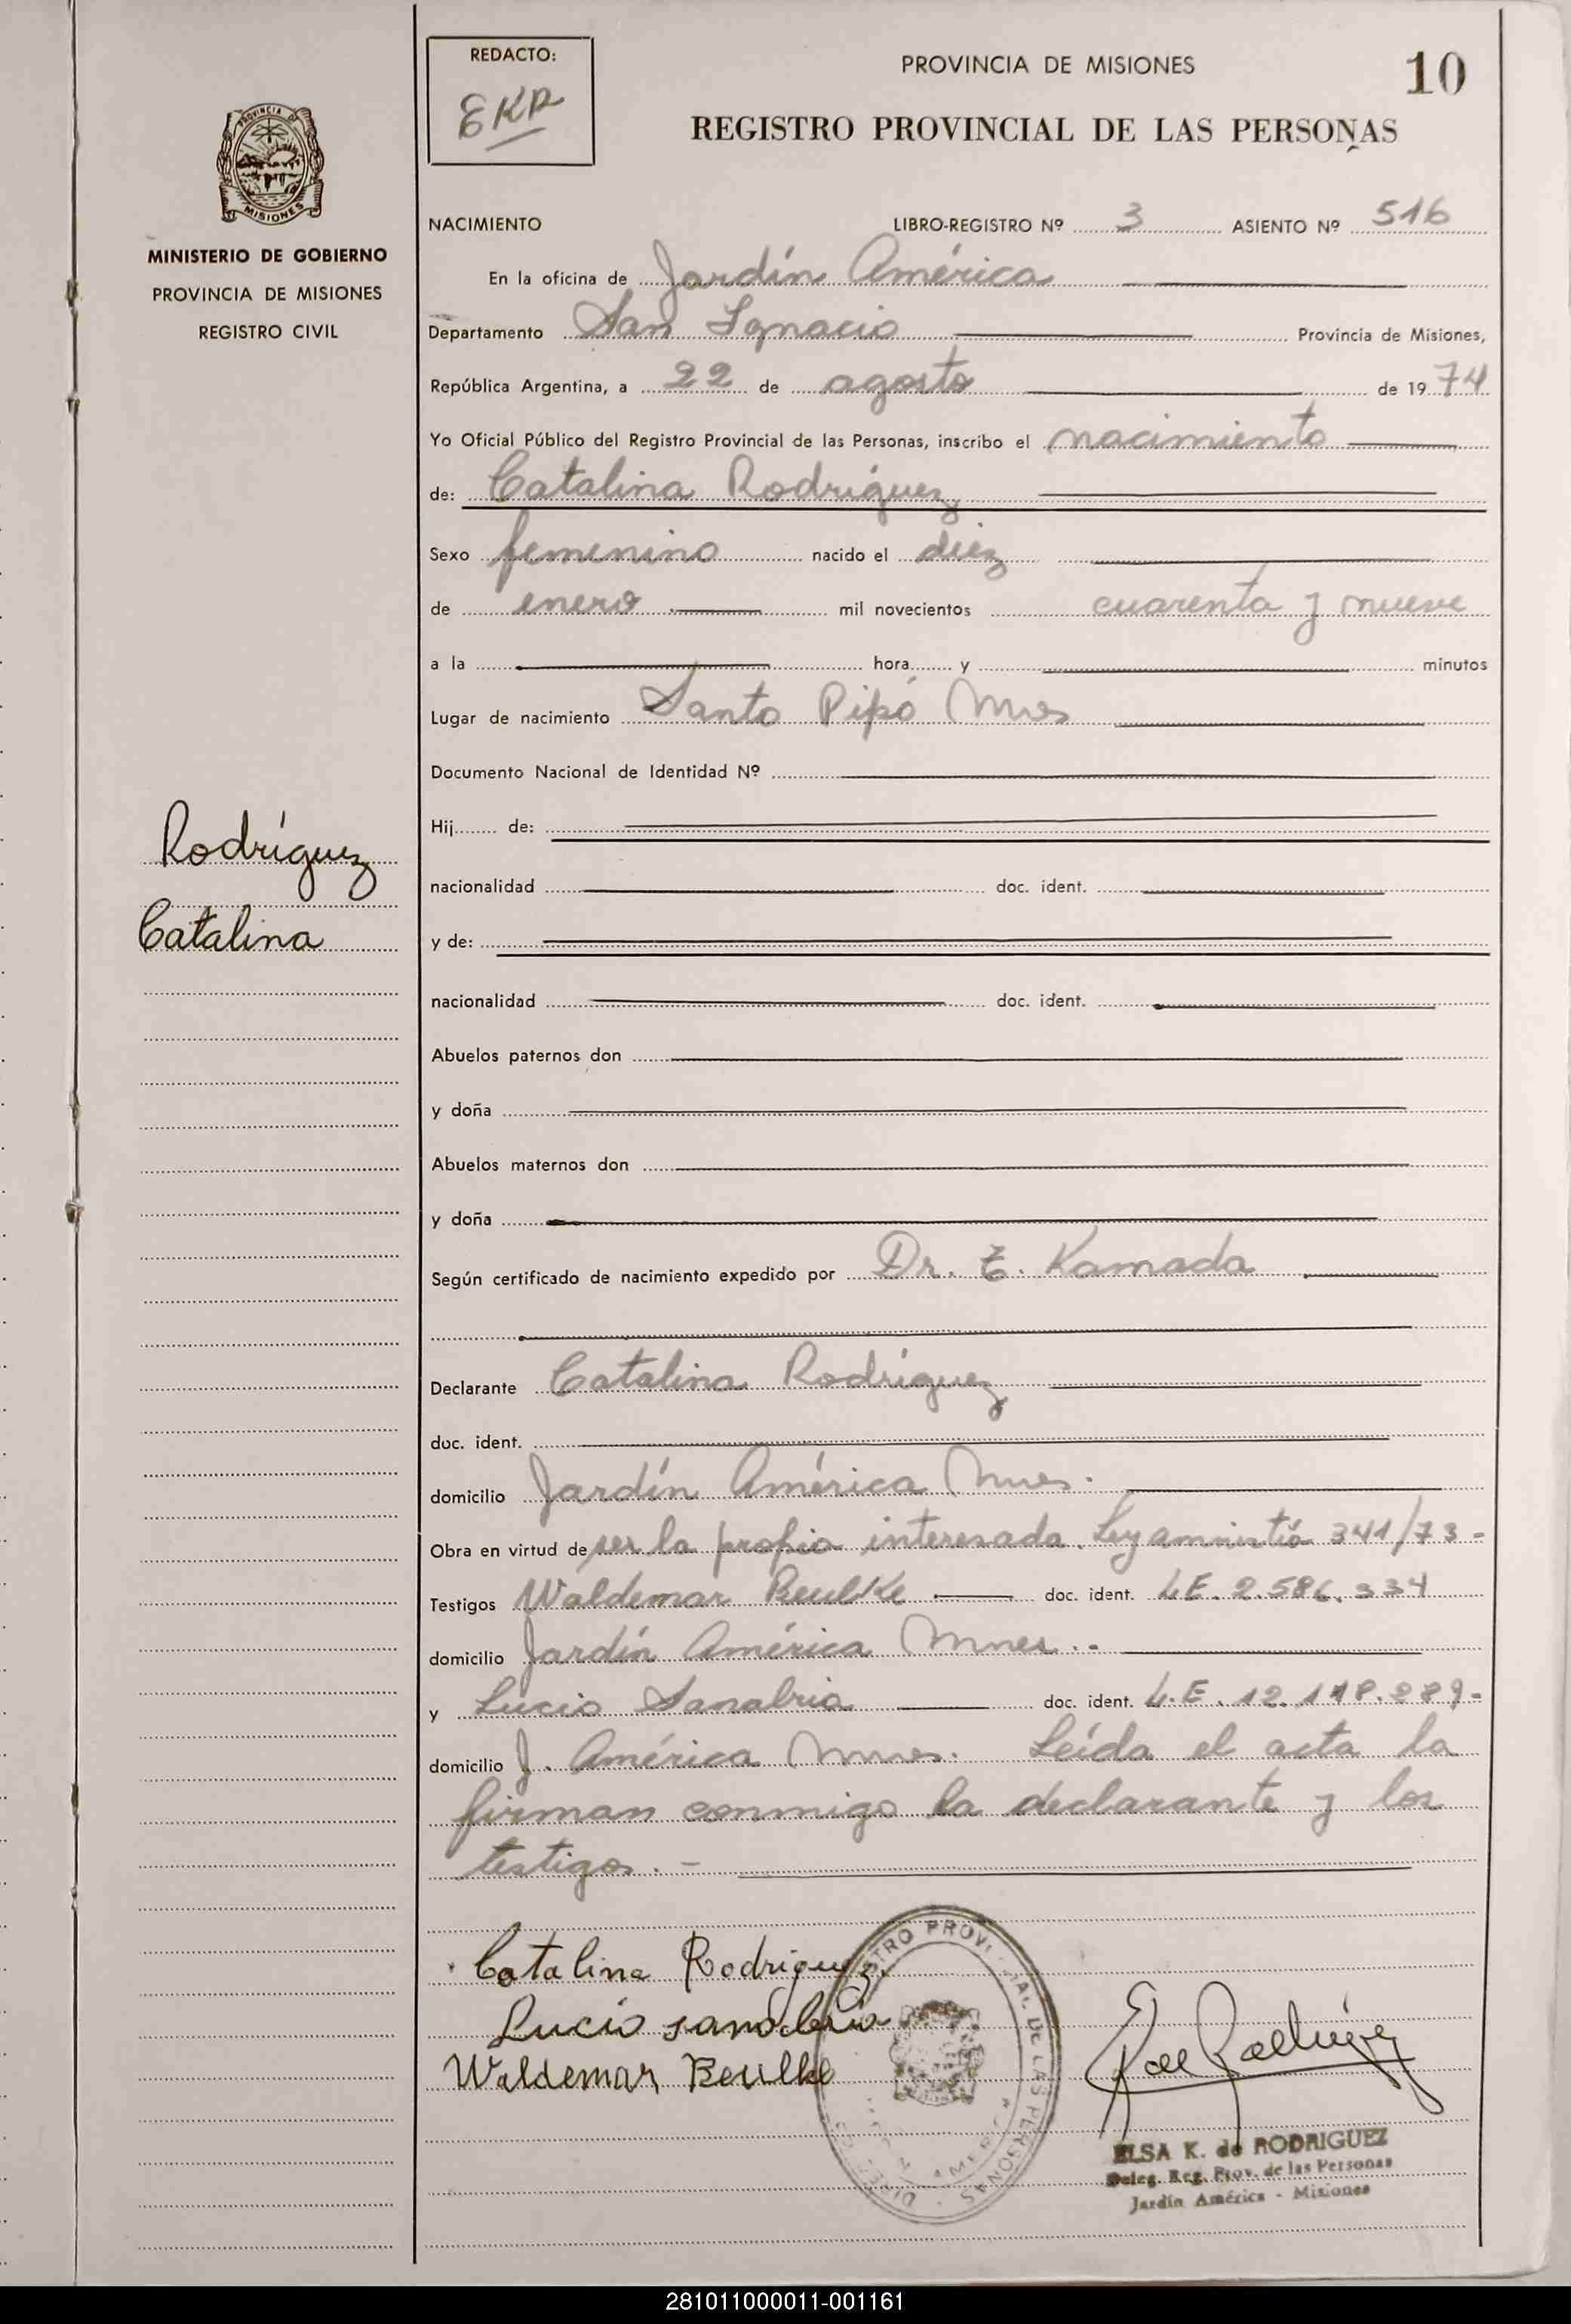 REDACTO:
EKR
PROVINCIA DE MISIONES
10
REGISTRO PROVINCIAL DE LAS PERSONAS
PROVINCIA DE
MISIONES
MINISTERIO DE GOBIERNO
PROVINCIA DE MISIONES
REGISTRO CIVIL
Rodríguez
Catalina
NACIMIENTO LIBRO-REGISTRO Nº 3 ASIENTO Nº 516
En la oficina de Jardín América
Departamento San Ignacio Provincia de Misiones,
República Argentina, a 22 de agosto de 1974
Yo Oficial Público del Registro Provincial de las Personas, inscribo el nacimiento
de: Catalina Rodríguez
Sexo femenino nacido el diez
de enero mil novecientos cuarenta y nueve
a la hora y minutos
Lugar de nacimiento Santo Pipó Mnes
Documento Nacional de Identidad Nº
Hij de:
nacionalidad doc. ident.
y de:
nacionalidad doc. ident.
Abuelos paternos don
y doña
Abuelos maternos don
y doña
Según certificado de nacimiento expedido por Dr. E. Kamada
Declarante Catalina Rodríguez
doc. ident.
domicilio Jardín América Mnes.
Obra en virtud de ser la propia interesada. Ley amnistía 341/73-
Testigos Waldemar Beulke doc. ident. L.E. 2.586.334
domicilio Jardín América Mnes.-
y Lucio Sanabria doc. ident. L.E. 12.118.289-
domicilio J. América Mnes. Leída el acta la
firman conmigo la declarante y los
testigos.-
Catalina Rodriguez.
Lucio
Waldemar Beulke
ELSA K. de RODRIGUEZ
Deleg. Reg. Prov. de las Personas
Jardín América - Misiones
281011000011-001161